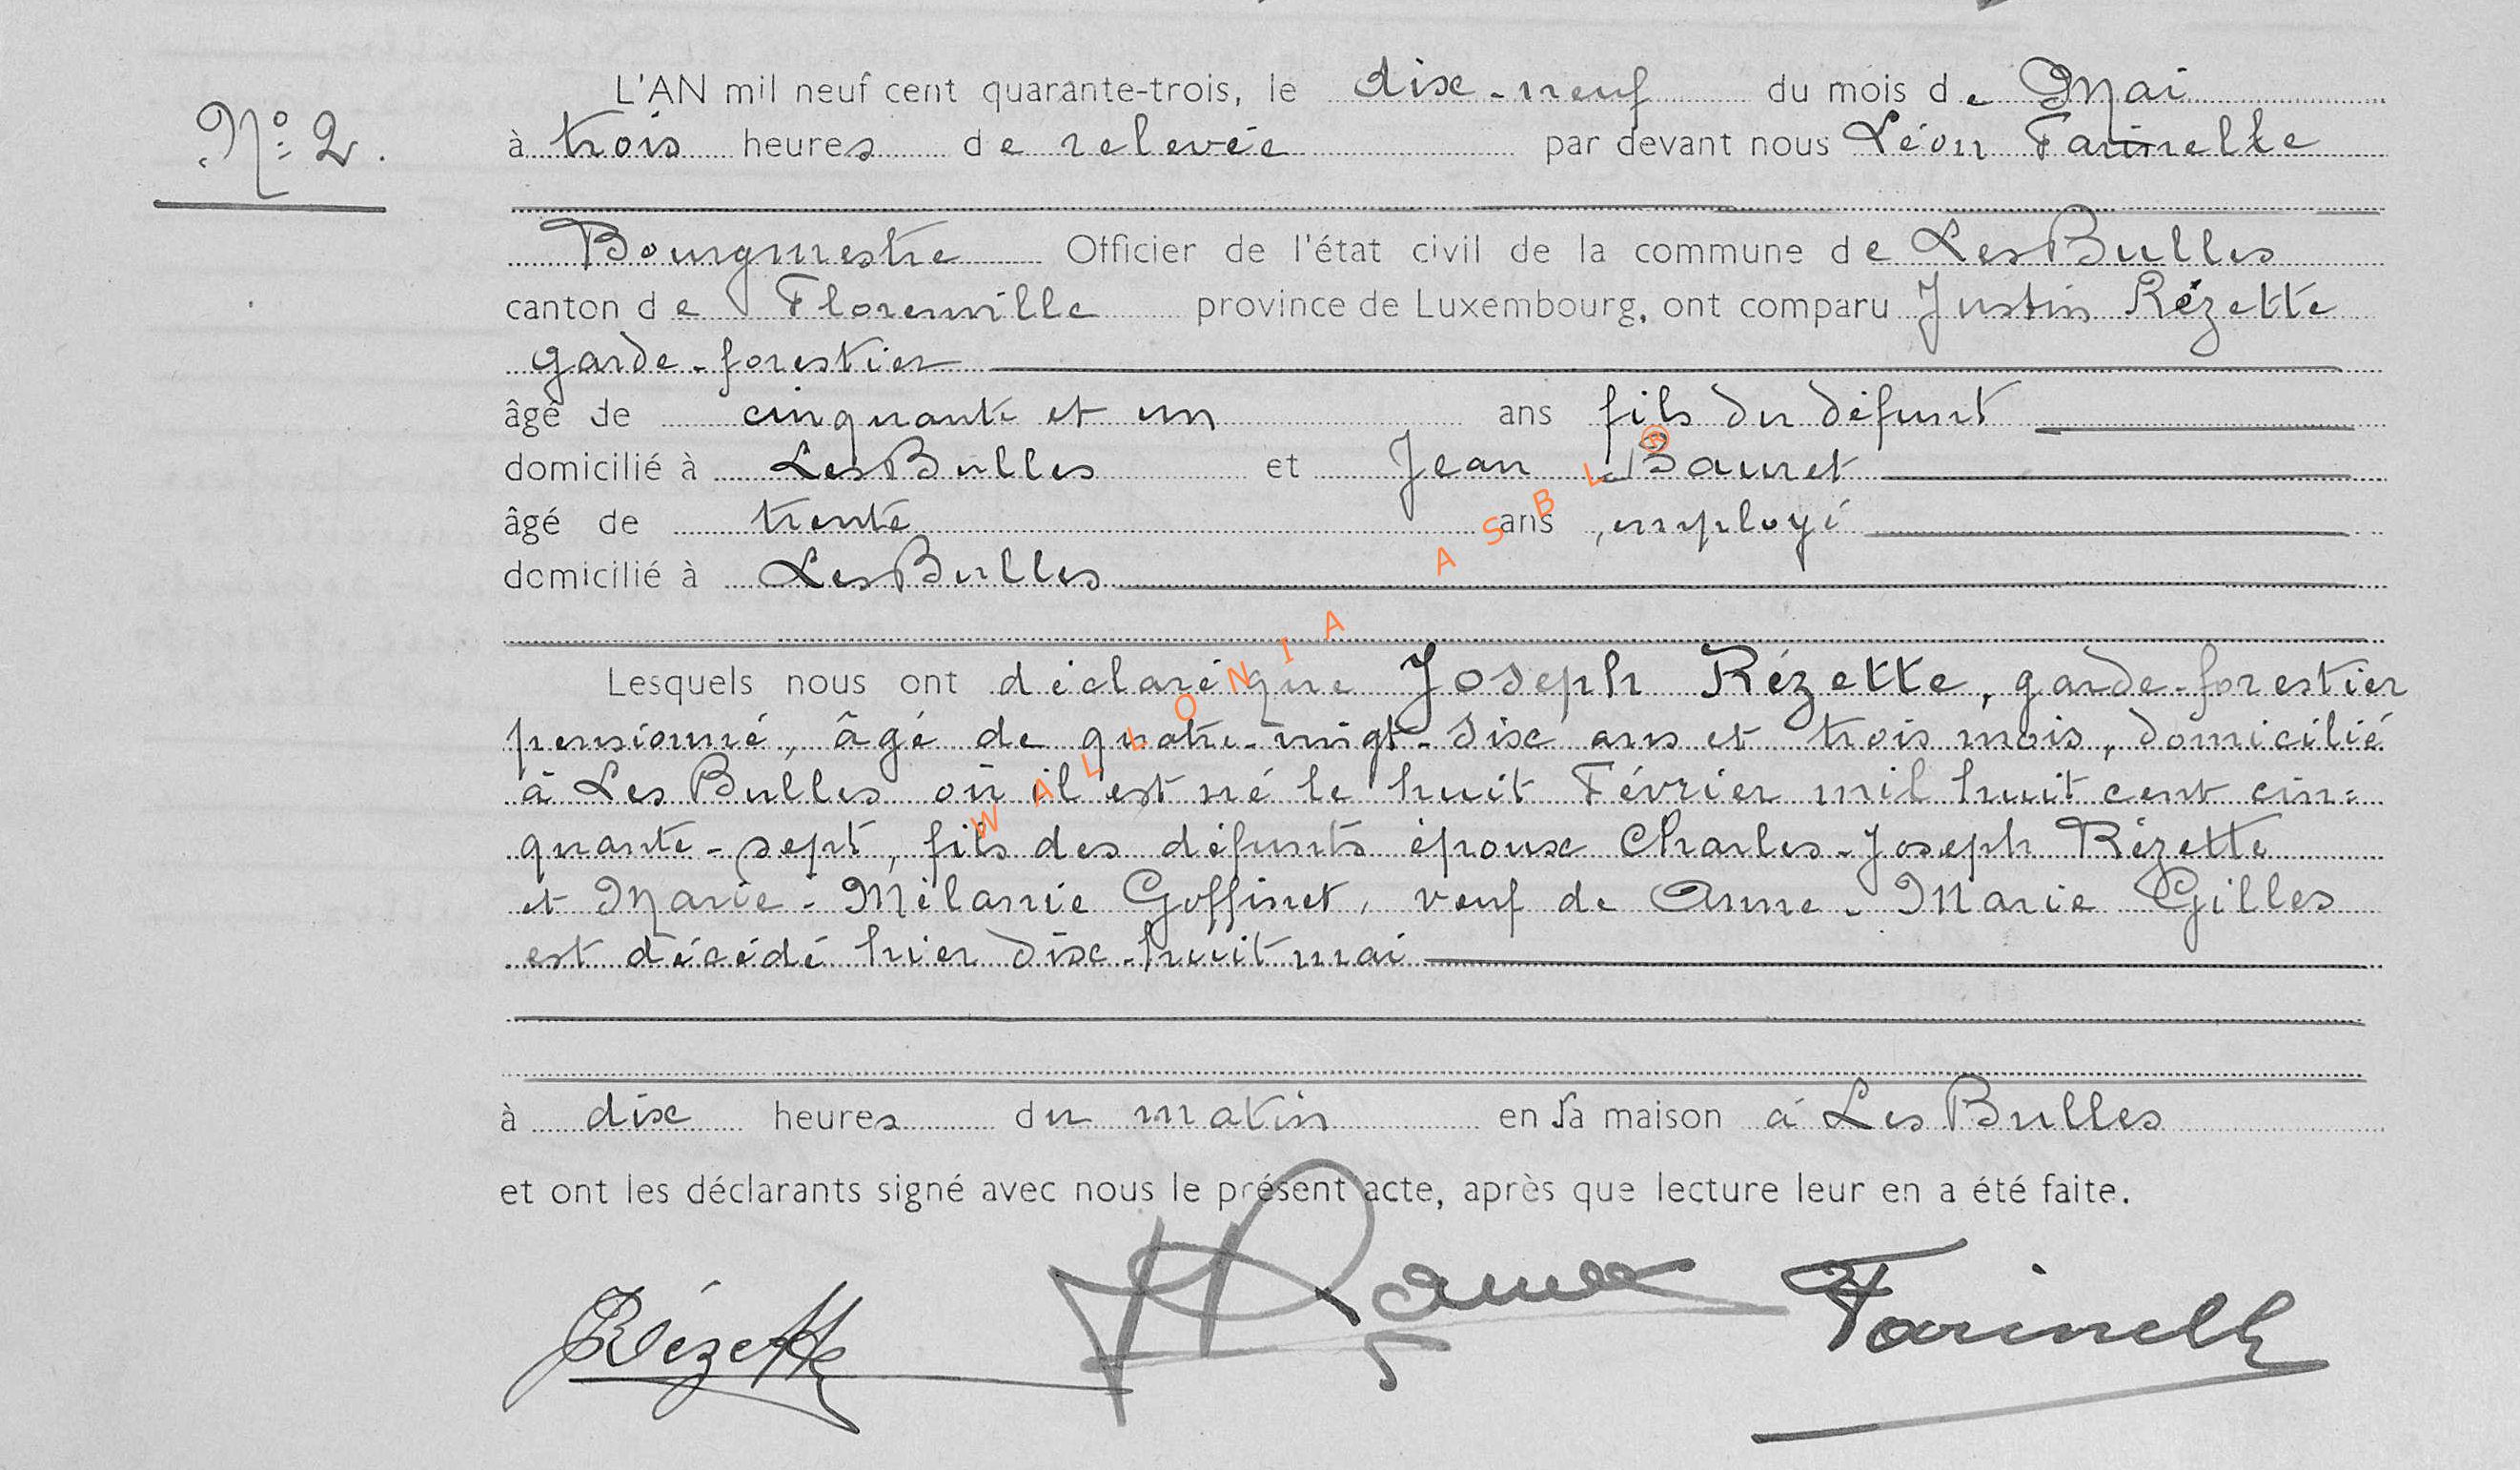 N° 2.
L'AN mil neuf cent quarante-trois, le dix-neuf du mois de Mai
à trois heures de relevée par devant nous Léon Farinelle
Bourgmestre Officier de l'état civil de la commune de Les Bulles
canton de Florenville province de Luxembourg, ont comparu Justin Rézette
garde-forestier
âgé de cinquante et un ans fils du défunt
domicilié à Les Bulles et Jean Bauret
âgé de trente ans, employé
domicilié à Les Bulles
Lesquels nous ont déclaré que Joseph Rézette, garde-forestier
pensionné, âgé de quatre-vingt-six ans et trois mois, domicilié
à Les Bulles où il est né le huit Février mil huit cent cin=
quante-sept, fils des défunts époux Charles-Joseph Rézette
et Marie-Mélanie Goffinet, veuf de Anne-Marie Gilles
est décédé hier dix-huit mai
à dix heures du matin en sa maison à Les Bulles
et ont les déclarants signé avec nous le présent acte, après que lecture leur en a été faite.
JRézette Farinelle
WALLONIA ASBL ®